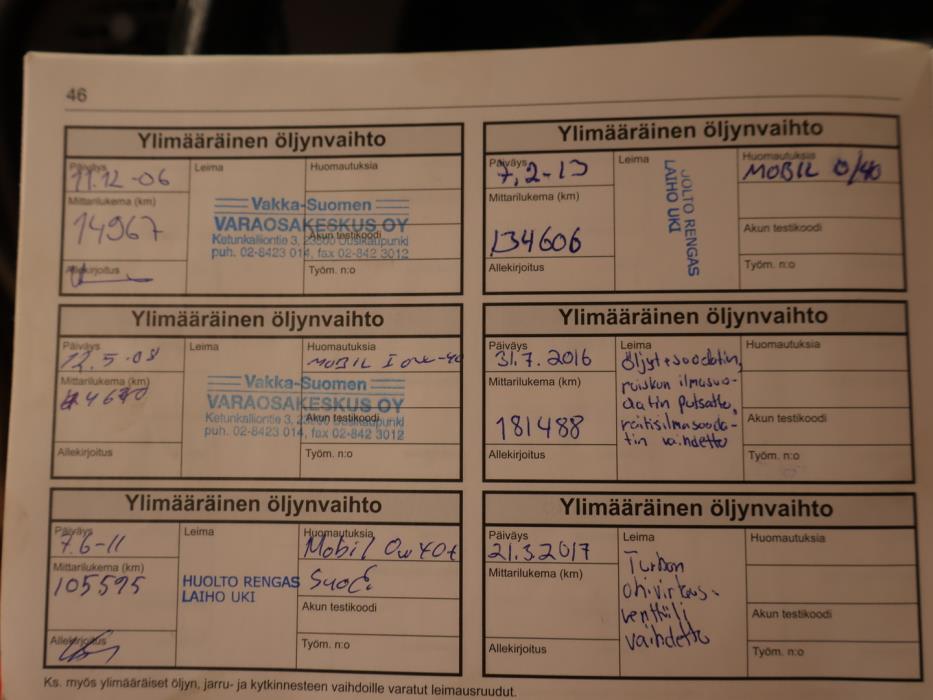 46
Ylimääräinen öljynvaihto
Päiväys
11.12-06
Mittarilukema (km)
14967
Allekirjoitus
Leima
Vakka-Suomen
VARAOSAKESKUS OY
Ketunkalliontie 3, 23500 Uusikaupunki
puh. 02-8423 014, fax 02-842 3012
Huomautuksia
Akun testikoodi
Työm. n:o
Ylimääräinen öljynvaihto
Päiväys
7,2-13
Mittarilukema (km)
134606
Allekirjoitus
Leima
HUOLTO RENGAS
LAIHO UKI
Huomautuksia
MOBIL 0/40
Akun testikoodi
Työm. n:o
Ylimääräinen öljynvaihto
Päiväys
12.5-08
Mittarilukema (km)
Allekirjoitus
Leima
Vakka-Suomen
VARAOSAKESKUS OY
Ketunkalliontie 3, 23500 Uusikaupunki
puh. 02-8423 014, fax 02-842 3012
Huomautuksia
MOBIL 1 0W-40
Akun testikoodi
Työm. n:o
Ylimääräinen öljynvaihto
Päiväys
31.7.2016
Mittarilukema (km)
181488
Allekirjoitus
Leima
Öljyt+suodatin,
ruiskun ilmasuo-
datin putsattu,
raitisilmasuoda-
tin vaihdettu
Huomautuksia
Akun testikoodi
Työm. n:o
Ylimääräinen öljynvaihto
Päiväys
7.6-11
Mittarilukema (km)
105595
Allekirjoitus
Leima
HUOLTO RENGAS
LAIHO UKI
Huomautuksia
Mobil 0w40+
Suod.
Akun testikoodi
Työm. n:o
Ylimääräinen öljynvaihto
Päiväys
21.3.2017
Mittarilukema (km)
Allekirjoitus
Leima
Turbon
ohivirtaus-
venttiili
vaihdettu
Huomautuksia
Akun testikoodi
Työm. n:o
Ks. myös ylimääräiset öljyn, jarru- ja kytkinnesteen vaihdoille varatut leimausruudut.